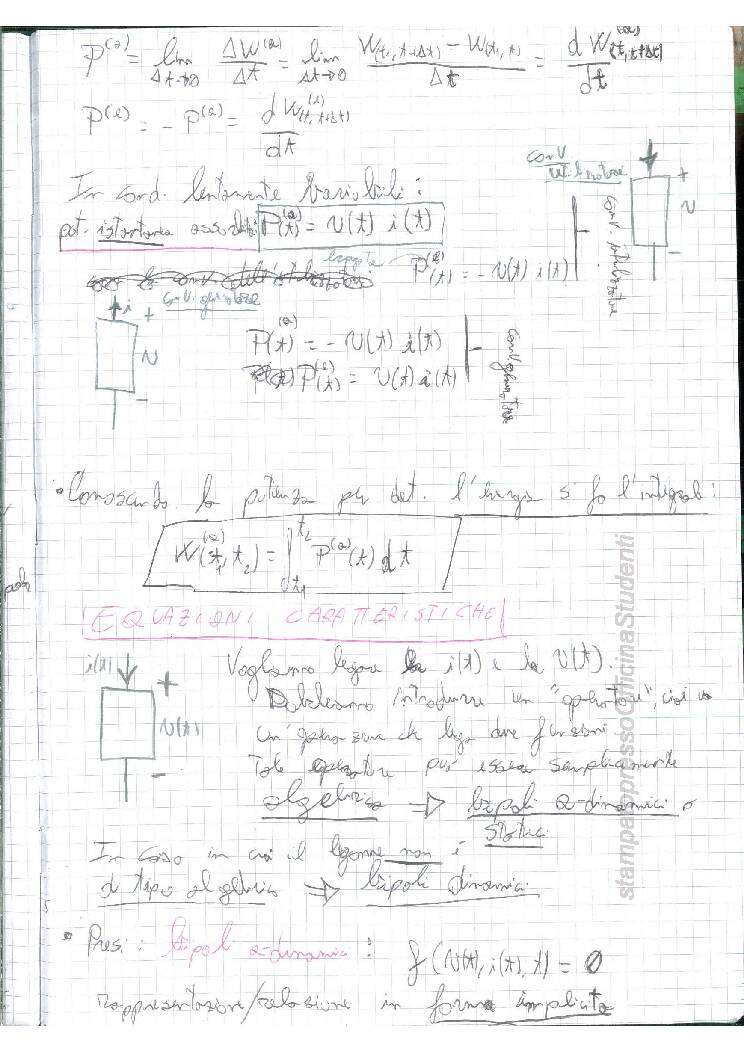 P^(a) = lim Δt→0 ΔW^(a)/Δt = lim Δt→0 (W(t1, t+Δt) − W(t1, t))/Δt = d W^(a)(t, t+Δt)/dt
P^(e) = − P^(a) = d W^(e)(t, t+Δt)/dt
conv utilizzatore
+
v
−
In cond. lentamente variabili:
pot. istantanea assorbita P^(a)(t) = v(t) i(t)
conv. utilizzatore
erogata P^(e)(t) = − v(t) i(t)
conv. generatore
i
+
v
−
P^(a)(t) = − v(t) i(t)
P^(e)(t) = v(t) i(t)
conv. generatore
• Conoscendo la potenza per det. l'energia si fa l'integrale:
W^(a)(t1, t2) = ∫t1 t2 P^(a)(t) dt
EQUAZIONI CARATTERISTICHE
i(t)
+
v(t)
−
Vogliamo legare la i(t) e la v(t).
Dobbiamo introdurre un "operatore", cioè
un'operazione che lega due funzioni
Tale operatore può essere semplicemente
algebrico ⇒ bipoli a-dinamici o
statici
In caso in cui il legame non è
di tipo algebrico ⇒ bipoli dinamici
• Presi: bipoli a-dinamici: f(v(t), i(t), t) = 0
rappresentazione/relazione in forma implicita
stampatopressoOfficinaStudenti